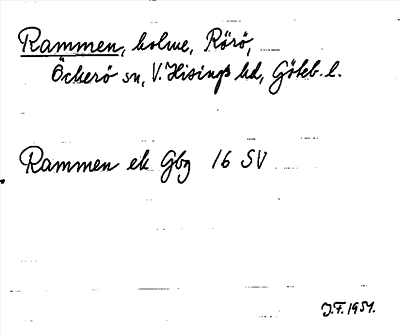 Rammen, holme, Rörö,
Öckerö sn, V. Hisings hd, Göteb. l.
Rammen ek Gbg 16 SV
J.F. 1951.